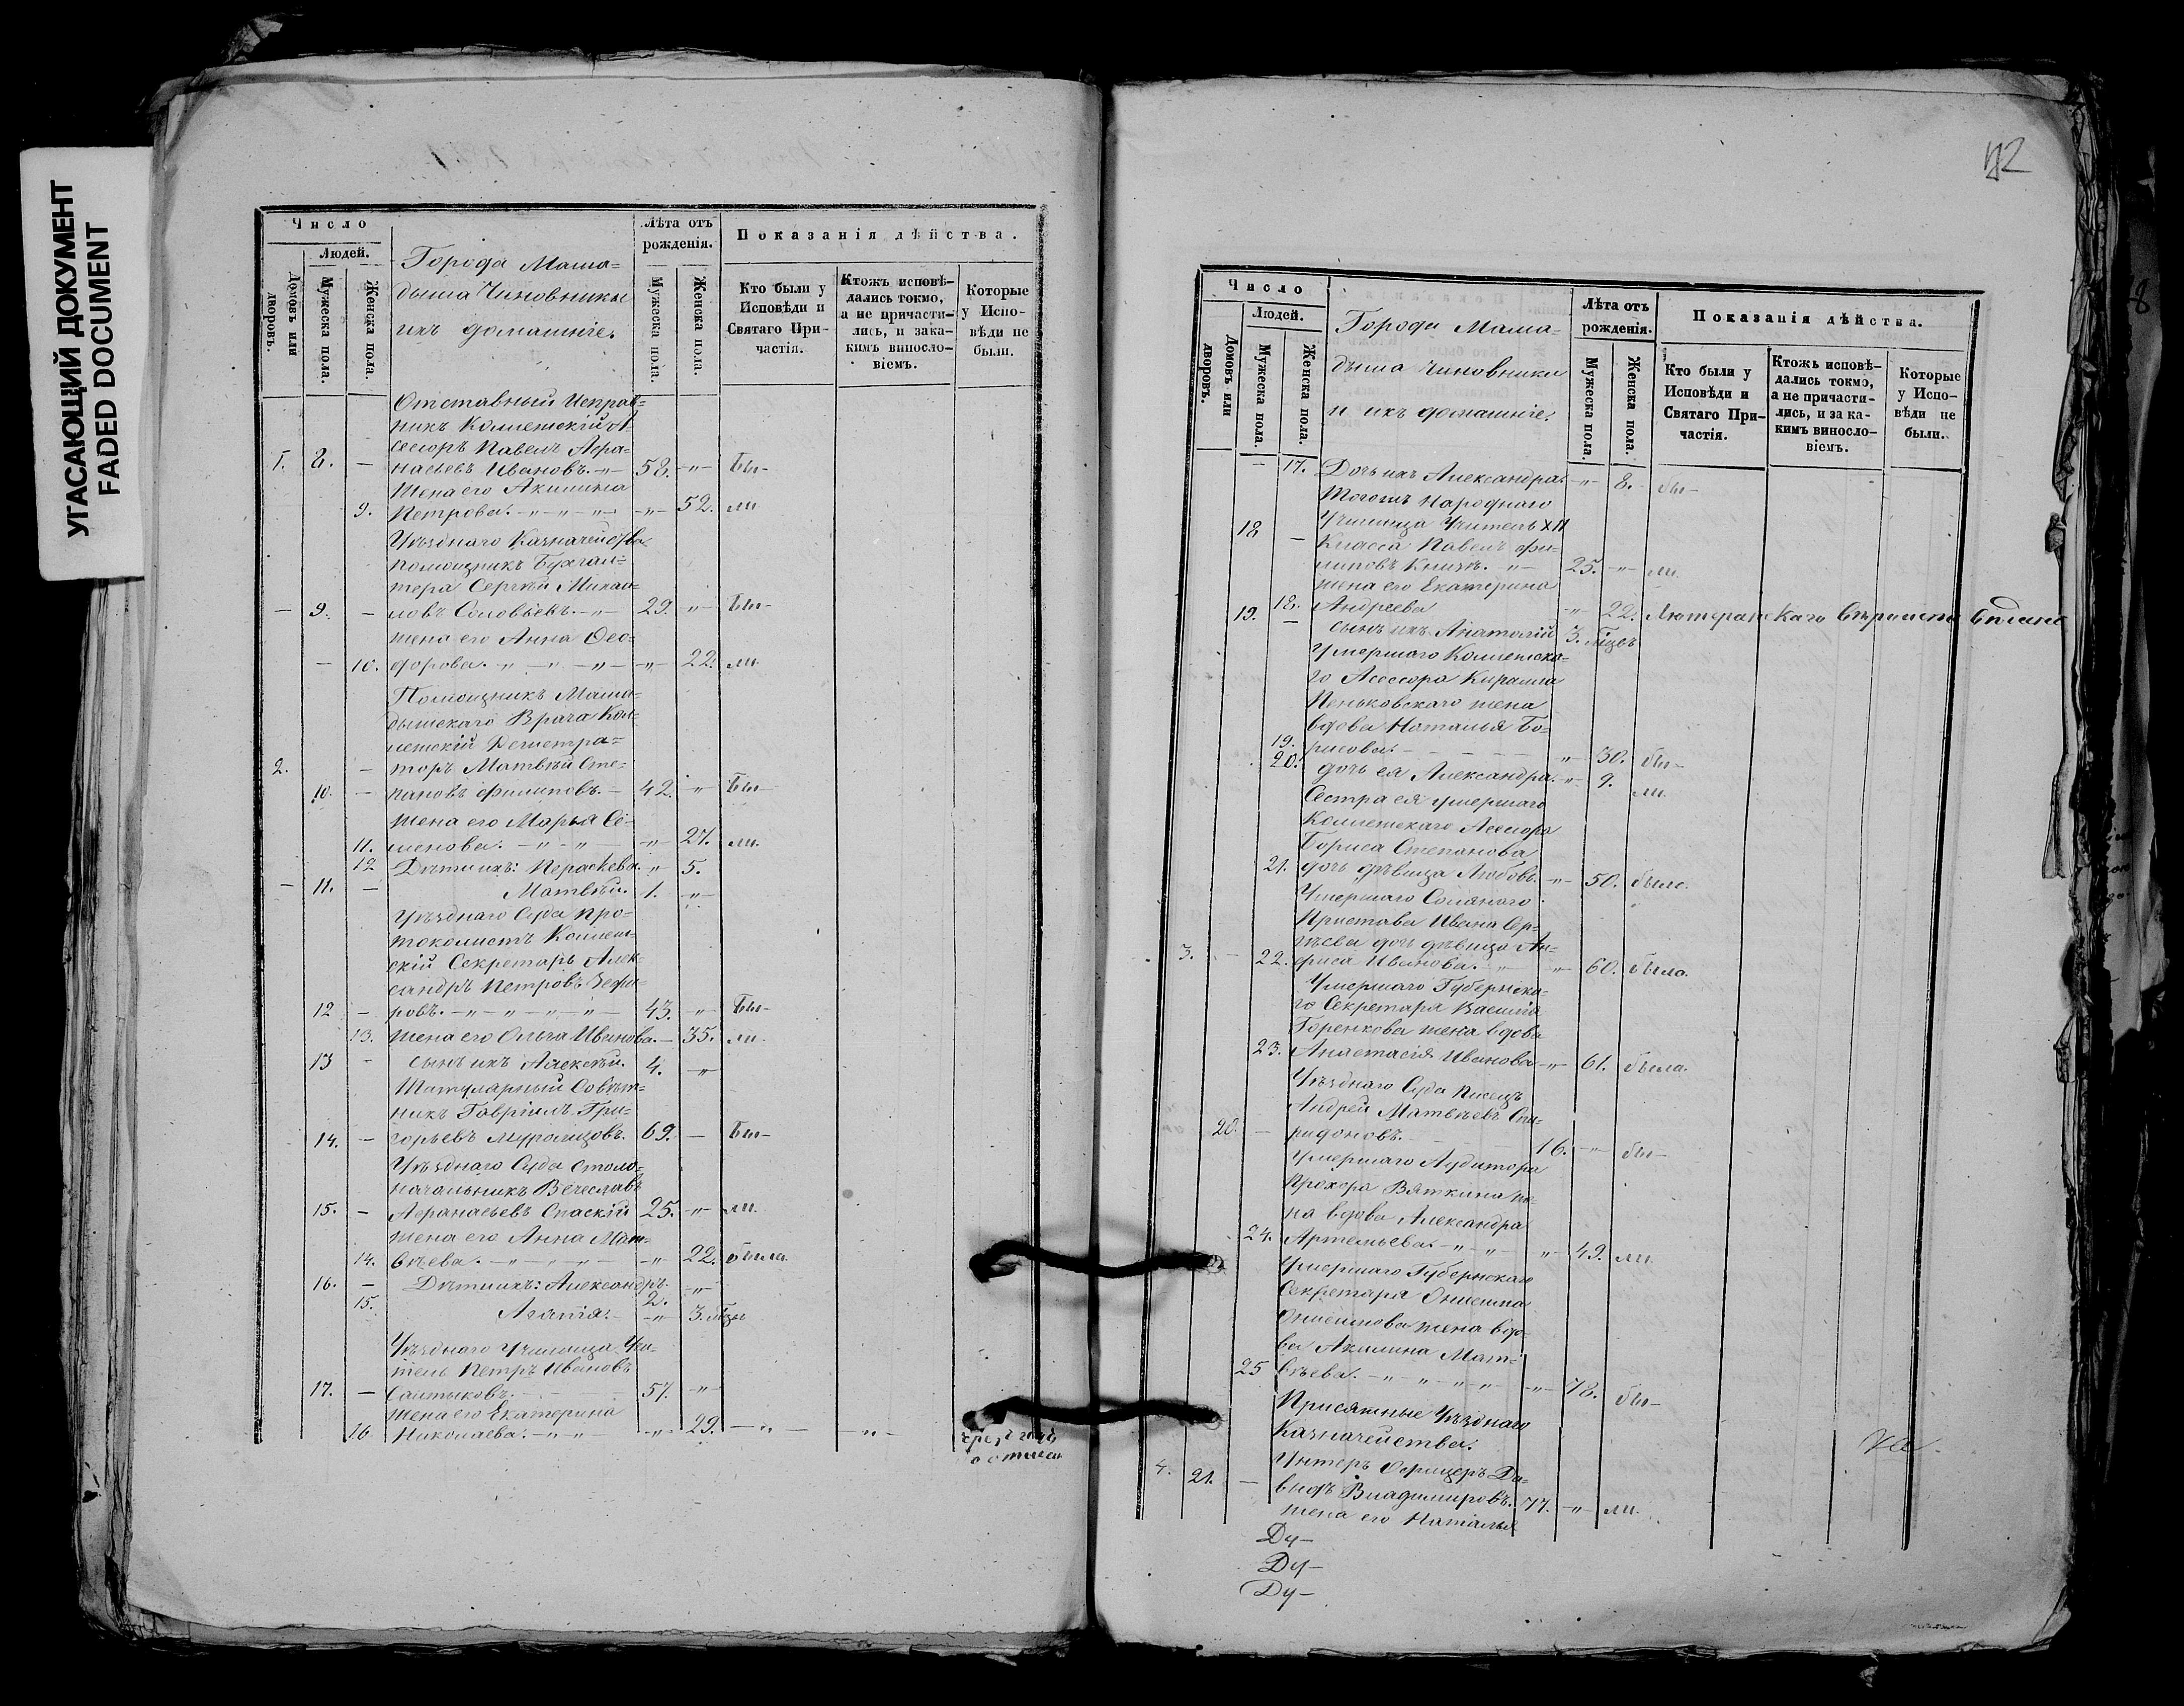 УГАСАЮЩИЙ ДОКУМЕНТ
FADED DOCUMENT
Число
Людей.
Домовъ или дворовъ.
Мужеска пола.
Женска пола.
Города Мама=
дыша Чиновники
ихъ домашніе.
Лѣта отъ рожденія.
Мужеска пола.
Женска пола.
Показанія дѣйства.
Кто были у Исповѣди и Святаго Причастія.
Ктожъ исповѣ-
дались токмо,
а не причасти-
лись, и зака-
кимъ винosло-
віемъ.
Которые
у Испо-
вѣди не
были.
Отставный Исправ=
никъ Коллежскій А
сессоръ Павелъ Афа=
1. 8. — насьевъ Ивановъ. —"— 58. —"— Бы-
Жена его Акилина
9. Петрова. —"—"—"— —"— 52. ли
Уѣзднаго Казначейства
помощникъ Бухгал=
тера Сергѣй Михай=
— 9. — ловъ Соловьевъ. —"— 29. "— Бы-
жена его Анна Ѳео=
— 10. дорова. "—"—"— —"— 22. ли.
Помощникъ Мама=
дышскаго Врача Кол=
лежскій Регистра=
2. — торъ Матвѣй Сте=
10. — пановъ Филиповъ. — 42. "— Бы-
Жена его Марья Се=
11. менова. —"—"— —"— 27. ли.
12 Дѣти ихъ: Параскева. "— 5.
— 11. — Матвѣй. 1. —"—
Уѣзднаго Суда Про=
токолистъ Коллеж=
скій Секретарь Алек=
сандръ Петровъ Зефи=
12 — ровъ. —"—"—"— 43. "— Бы-
13. Жена его Ольга Иванова. — 35. ли.
13 — сынъ ихъ Алексѣй. 4. —"—
Титулярный Совѣт=
никъ Гавріилъ Гри=
14. — горьевъ Муромцовъ. 69. — Бы-
Уѣзднаго Суда Столо=
начальникъ Вячеславъ
15. — Афанасьевъ Спаскій 25. —"— ли.
жена его Анна Мат=
14. вѣева. —"—"—"— —"— 22. была.
16. — Дѣти ихъ: Александръ. 2. —"—
15. Агапія. — —"— 3. мѣцы
Уѣзднаго Училища Учи=
тель Петръ Ивановъ
17. — Салтыковъ. — 57. —"—
Жена его Екатерина
16 Николаева. —"—"— —"— 29. —"— —"—
42
Число
Людей.
Домовъ или дворовъ.
Мужеска пола.
Женска пола.
Города Мама=
дыша Чиновники
и ихъ домашніе.
Лѣта отъ рожденія.
Мужеска пола.
Женска пола.
Показанія дѣйства.
Кто были у Исповѣди и Святаго Причастія.
Ктожъ исповѣ-
дались токмо,
а не причасти-
лись, и за ка-
кимъ винosло-
віемъ.
Которые
у Испо-
вѣди не
были.
— 17. Дочь ихъ Александра. —"— 8. бы-
Тогожъ Народнаго
18 Училища Учитель XII
— Класса Павелъ Фи=
липовъ —"— 25. —"— ли.
жена его Екатерина
18. Андреева —"— 22. Лютеранскаго
19. — сынъ ихъ Анатолій 3. мѣцевъ
Умершаго Коллежска=
го Асессора Кирилла
Пеньковскаго жена
вдова Наталья Бо=
19. рисова. — "— 30. бы-
20. дочь ея Александра. —"— 9. ли.
Сестра ея умершаго
Коллежскаго Асессора
Бориса Степанова
21. дочь дѣвица Любовь. —"— 50. была.
Умершаго Солянаго
Пристава Ивана Сер=
гѣева дочь дѣвица Ан=
3. — 22. фиса Иванова. —"— "— 60. была.
Умершаго Губернска=
го Секретаря Василія
Горенкова жена вдова
23. Анастасія Иванова —"— 61. была.
Уѣзднаго Суда Писецъ
Андрей Матвѣевъ Спи=
20. — ридоновъ. — 16. —"— бы-
Умершаго Аудитора
Прохора Вяткина же
на вдова Александра
24. Артемьева. —"—"— "— 49. ли.
Умершаго Губернскаго
Секретаря Онисима
Онисимова жена вдо=
ва Акилина Мат=
25 вѣева. —"—"—"—"— —"— 78. бы-
Присяжные Уѣзднаго
Казначейства.
Унтеръ Офицеръ Да=
4. 21. — выдъ Владимировъ. 77. —"— ли.
жена его Наталья
Ду—
Ду—
Ду—